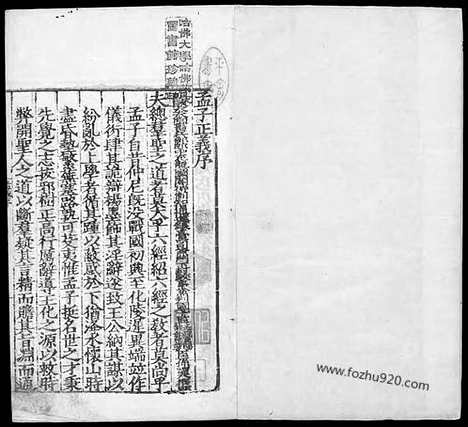 孟子正義序
夫總羣聖之道者莫大乎六經紹六經之敎者莫尚乎
孟子自昔仲尼旣没戰國初興至化陵遲異端並作
儀衍肆其詭辯楊墨飾其淫辭遂致王公納其謀以
紛亂於上學者循其踵以蔽惑於下猶洚水懷山時
盡昏墊繁蕪塞路孰可芟夷惟孟子挺名世之才秉
先覺之志拔邪樹正高行厲辭導王化之源以救時
弊開聖人之道以斷羣疑其言精而贍其旨淵而通
哈佛大學哈佛
圖書館珍藏印
www.fozhu920.com